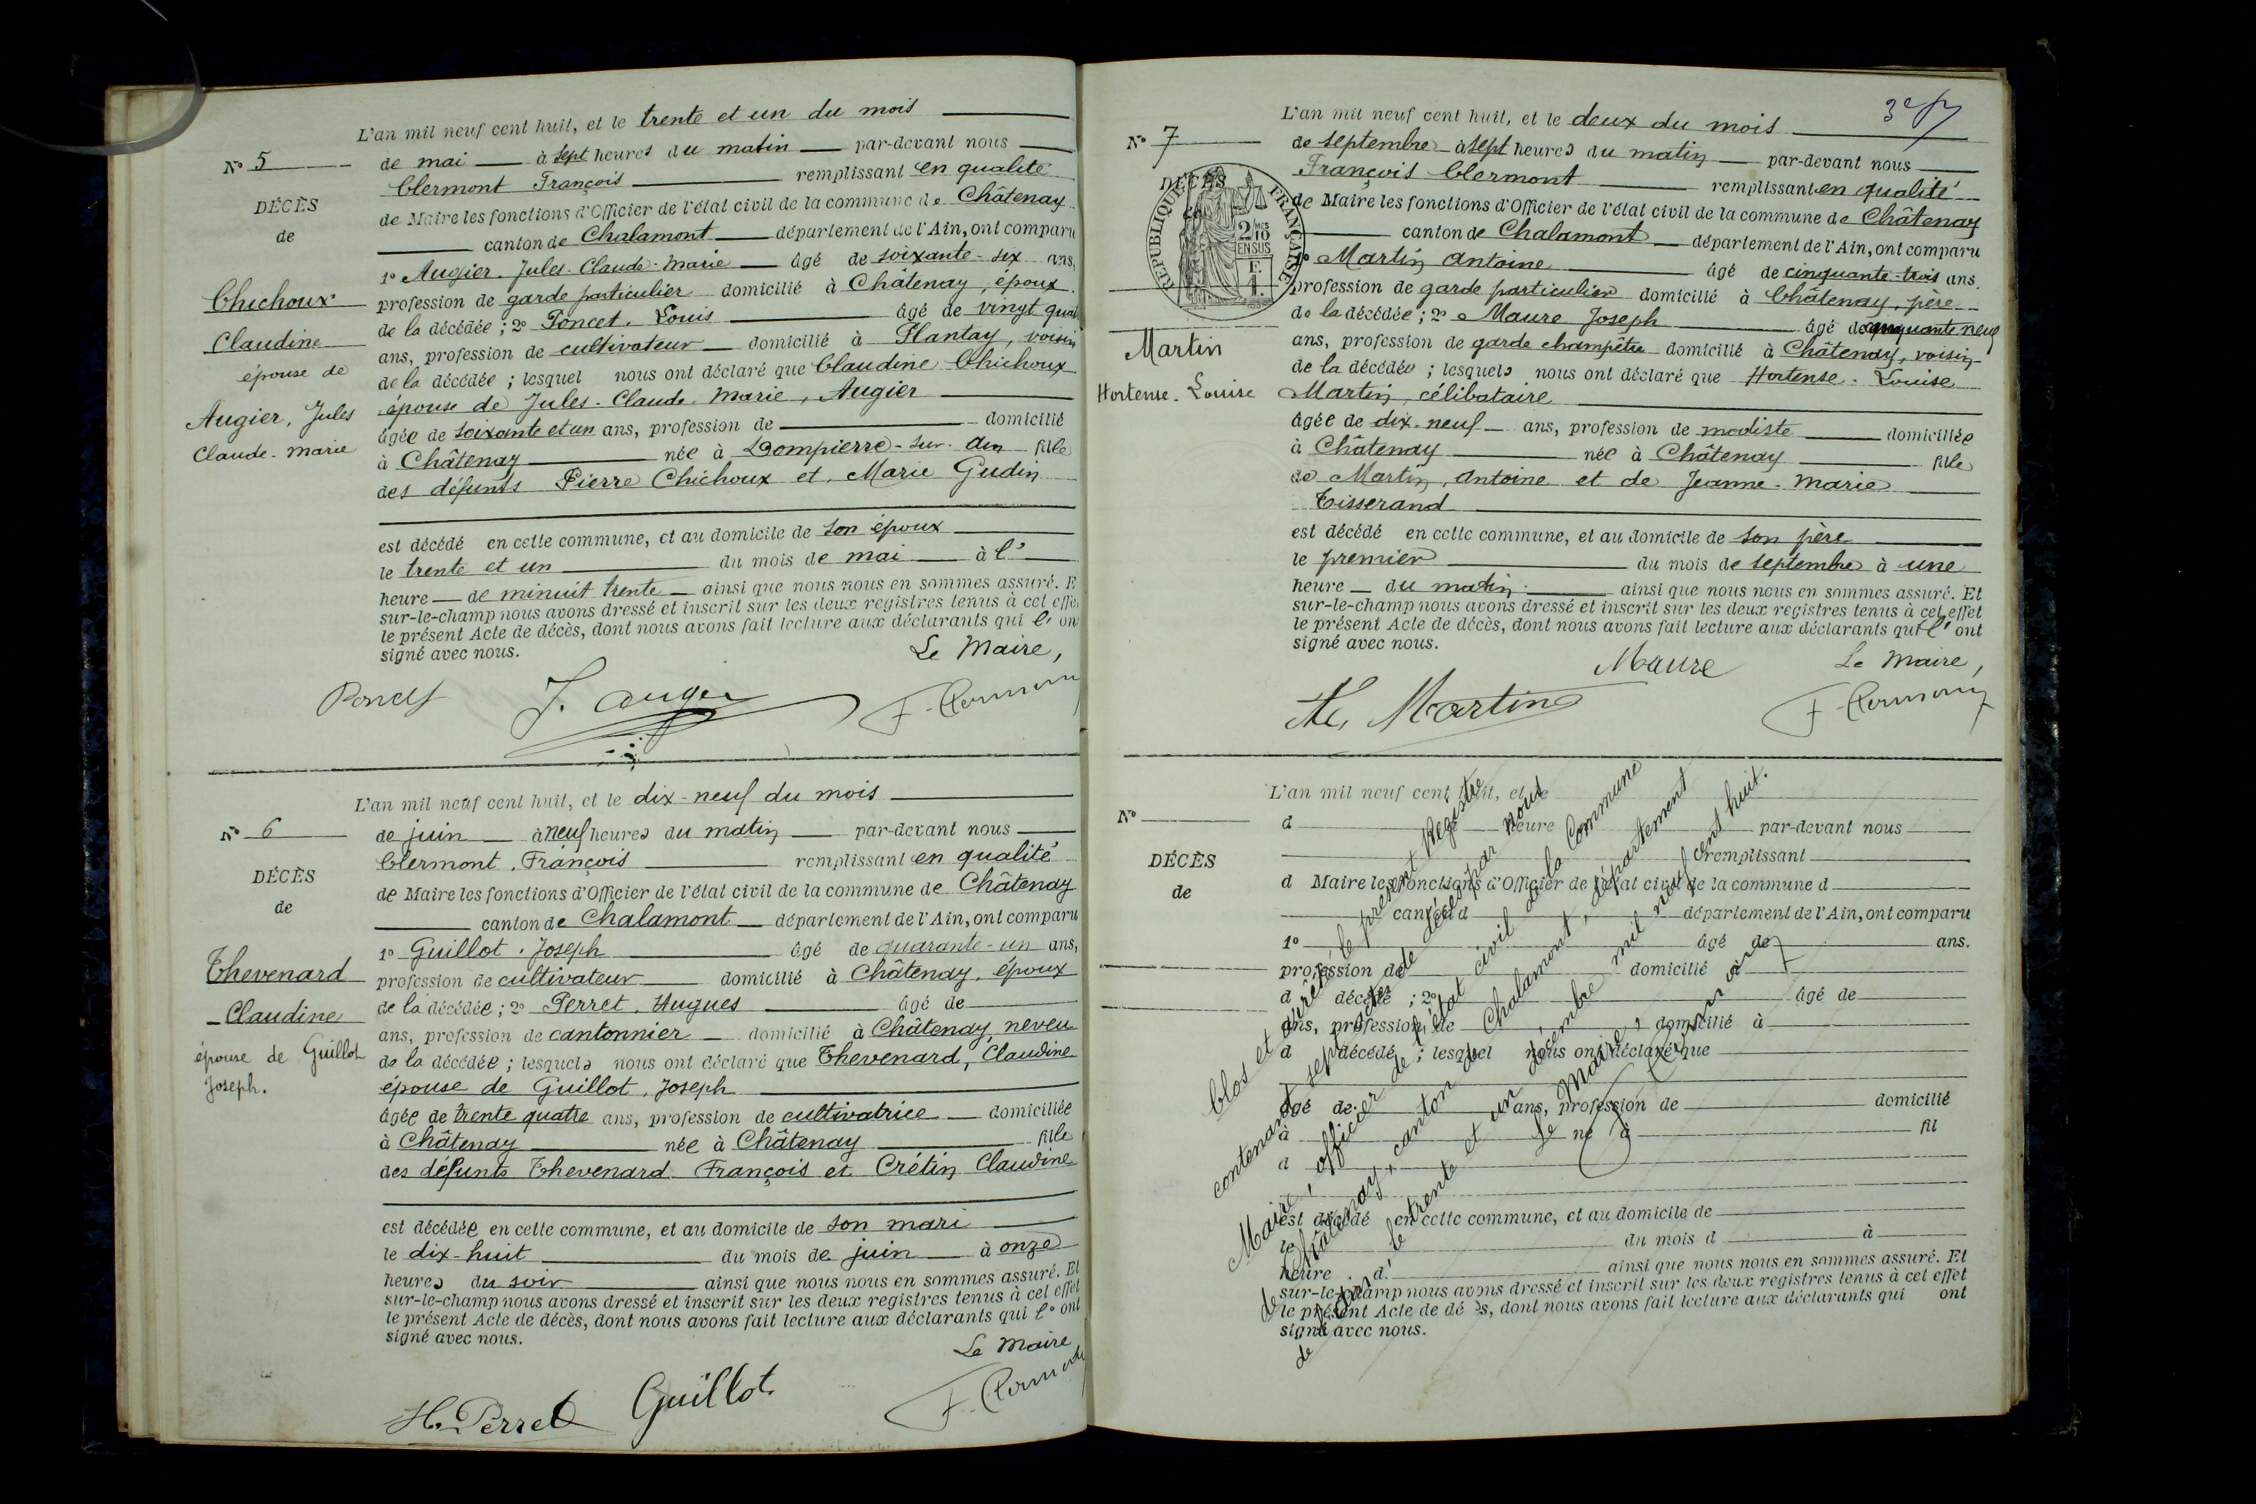 L'an mil neuf cent huit, et le trente et un du mois
N° 5
de mai à sept heures du matin par-devant nous
Clermont François remplissant en qualité
DÉCÈS
de
de Maire les fonctions d'Officier de l'état civil de la commune de Châtenay
canton de Chalamont département de l'Ain, ont comparu
1° Augier. Jules. Claude. Marie âgé de soixante-six ans,
Chichoux
profession de garde particulier domicilié à Châtenay, époux
de la décédée ; 2° Poncet. Louis âgé de vingt
Claudine
ans, profession de cultivateur domicilié à voisin
épouse de
de la décédée ; lesquel nous ont déclaré que Claudine Chichoux
Augier, Jules
épouse de Jules-Claude Marie, Augier
Claude-Marie
âgée de soixante et un ans, profession de domicilié
à Châtenay née à Dompierre-sur-Ain fille
des défunts Pierre Chichoux et Marie Gudin
est décédé en cette commune, et au domicile de son époux
le trente et un du mois de mai à l'
heure de minuit trente ainsi que nous nous en sommes assuré. E
sur-le-champ nous avons dressé et inscrit sur les deux registres tenus à cet effe
le présent Acte de décès, dont nous avons fait lecture aux déclarants qui l' on
signé avec nous.
Le Maire,
Poncet J. Augier F. Clermont
L'an mil neuf cent huit, et le dix-neuf du mois
N° 6
de juin à neuf heures du matin par-devant nous
Clermont, François remplissant en qualité
DÉCÈS
de
de Maire les fonctions d'Officier de l'état civil de la commune de Châtenay
canton de Chalamont département de l'Ain, ont comparu
1° Guillot. Joseph âgé de quarante-un ans,
Thevenard
profession de cultivateur domicilié à Châtenay, époux
Claudine
de la décédée ; 2° Perret. Hugues âgé de
ans, profession de cantonnier domicilié à Châtenay, neveu
épouse de Guillot
de la décédée ; lesquels nous ont déclaré que Thevenard, Claudine
Joseph.
épouse de Guillot, Joseph
âgée de trente quatre ans, profession de cultivatrice domiciliée
à Châtenay née à Châtenay fille
des défunts Thevenard François et Crétin Claudine
est décédée en cette commune, et au domicile de son mari
le dix-huit du mois de juin à onze
heures du soir ainsi que nous nous en sommes assuré. Et
sur-le-champ nous avons dressé et inscrit sur les deux registres tenus à cet effet
le présent Acte de décès, dont nous avons fait lecture aux déclarants qui l' ont
signé avec nous.
Le Maire
H. Perret Guillot F. Clermont
L'an mil neuf cent huit, et le deux du mois
N° 7
de septembre à sept heures du matin par-devant nous
François Clermont remplissant en qualité
DÉCÈS
RÉPUBLIQUE FRANÇAISE
2 MES 10 EN SUS
de Maire les fonctions d'Officier de l'état civil de la commune de Châtenay
canton de Chalamont département de l'Ain, ont comparu
Martin Antoine âgé de cinquante-trois ans.
profession de garde particulier domicilié à Châtenay, père
de la décédée ; 2° Maure Joseph âgé de cinquante neuf
Martin
ans, profession de garde champêtre domicilié à Châtenay, voisin
de la décédée ; lesquels nous ont déclaré que Hortense. Louise
Hortense. Louise
Martin, célibataire
âgée de dix-neuf ans, profession de modiste domiciliée
à Châtenay née à Châtenay fille
de Martin, Antoine et de Jeanne-Marie
Tisserand
est décédé en cette commune, et au domicile de son père
le premier du mois de septembre à une
heure du matin ainsi que nous nous en sommes assuré. Et
sur-le-champ nous avons dressé et inscrit sur les deux registres tenus à cet effet
le présent Acte de décès, dont nous avons fait lecture aux déclarants qui l' ont
signé avec nous.
Maure Le Maire,
Martin F. Clermont
L'an mil neuf cent huit, et le
N°
d heure par-devant nous
remplissant
DÉCÈS
de
d Maire les fonctions d'Officier de l'état civil de la commune d
canton d département de l'Ain, ont comparu
1° âgé de ans.
profession de domicilié à
d décédé ; 2° âgé de
ans, profession de domicilié à
d décédé ; lesquel nous ont déclaré que
âgé de ans, profession de domicilié
à né à fil
d
est décédé en cette commune, et au domicile de
le du mois d à
heure d ainsi que nous nous en sommes assuré. Et
sur-le-champ nous avons dressé et inscrit sur les deux registres tenus à cet effet
le présent Acte de décès, dont nous avons fait lecture aux déclarants qui ont
signé avec nous.
Clos et arrêté le présent Registre
contenant sept actes de décès par nous
Maire, officier de l'état civil de la Commune
de Châtenay, canton de Chalamont, département
de l'Ain, le trente et un décembre mil neuf cent huit.
Le Maire,
F. Clermont